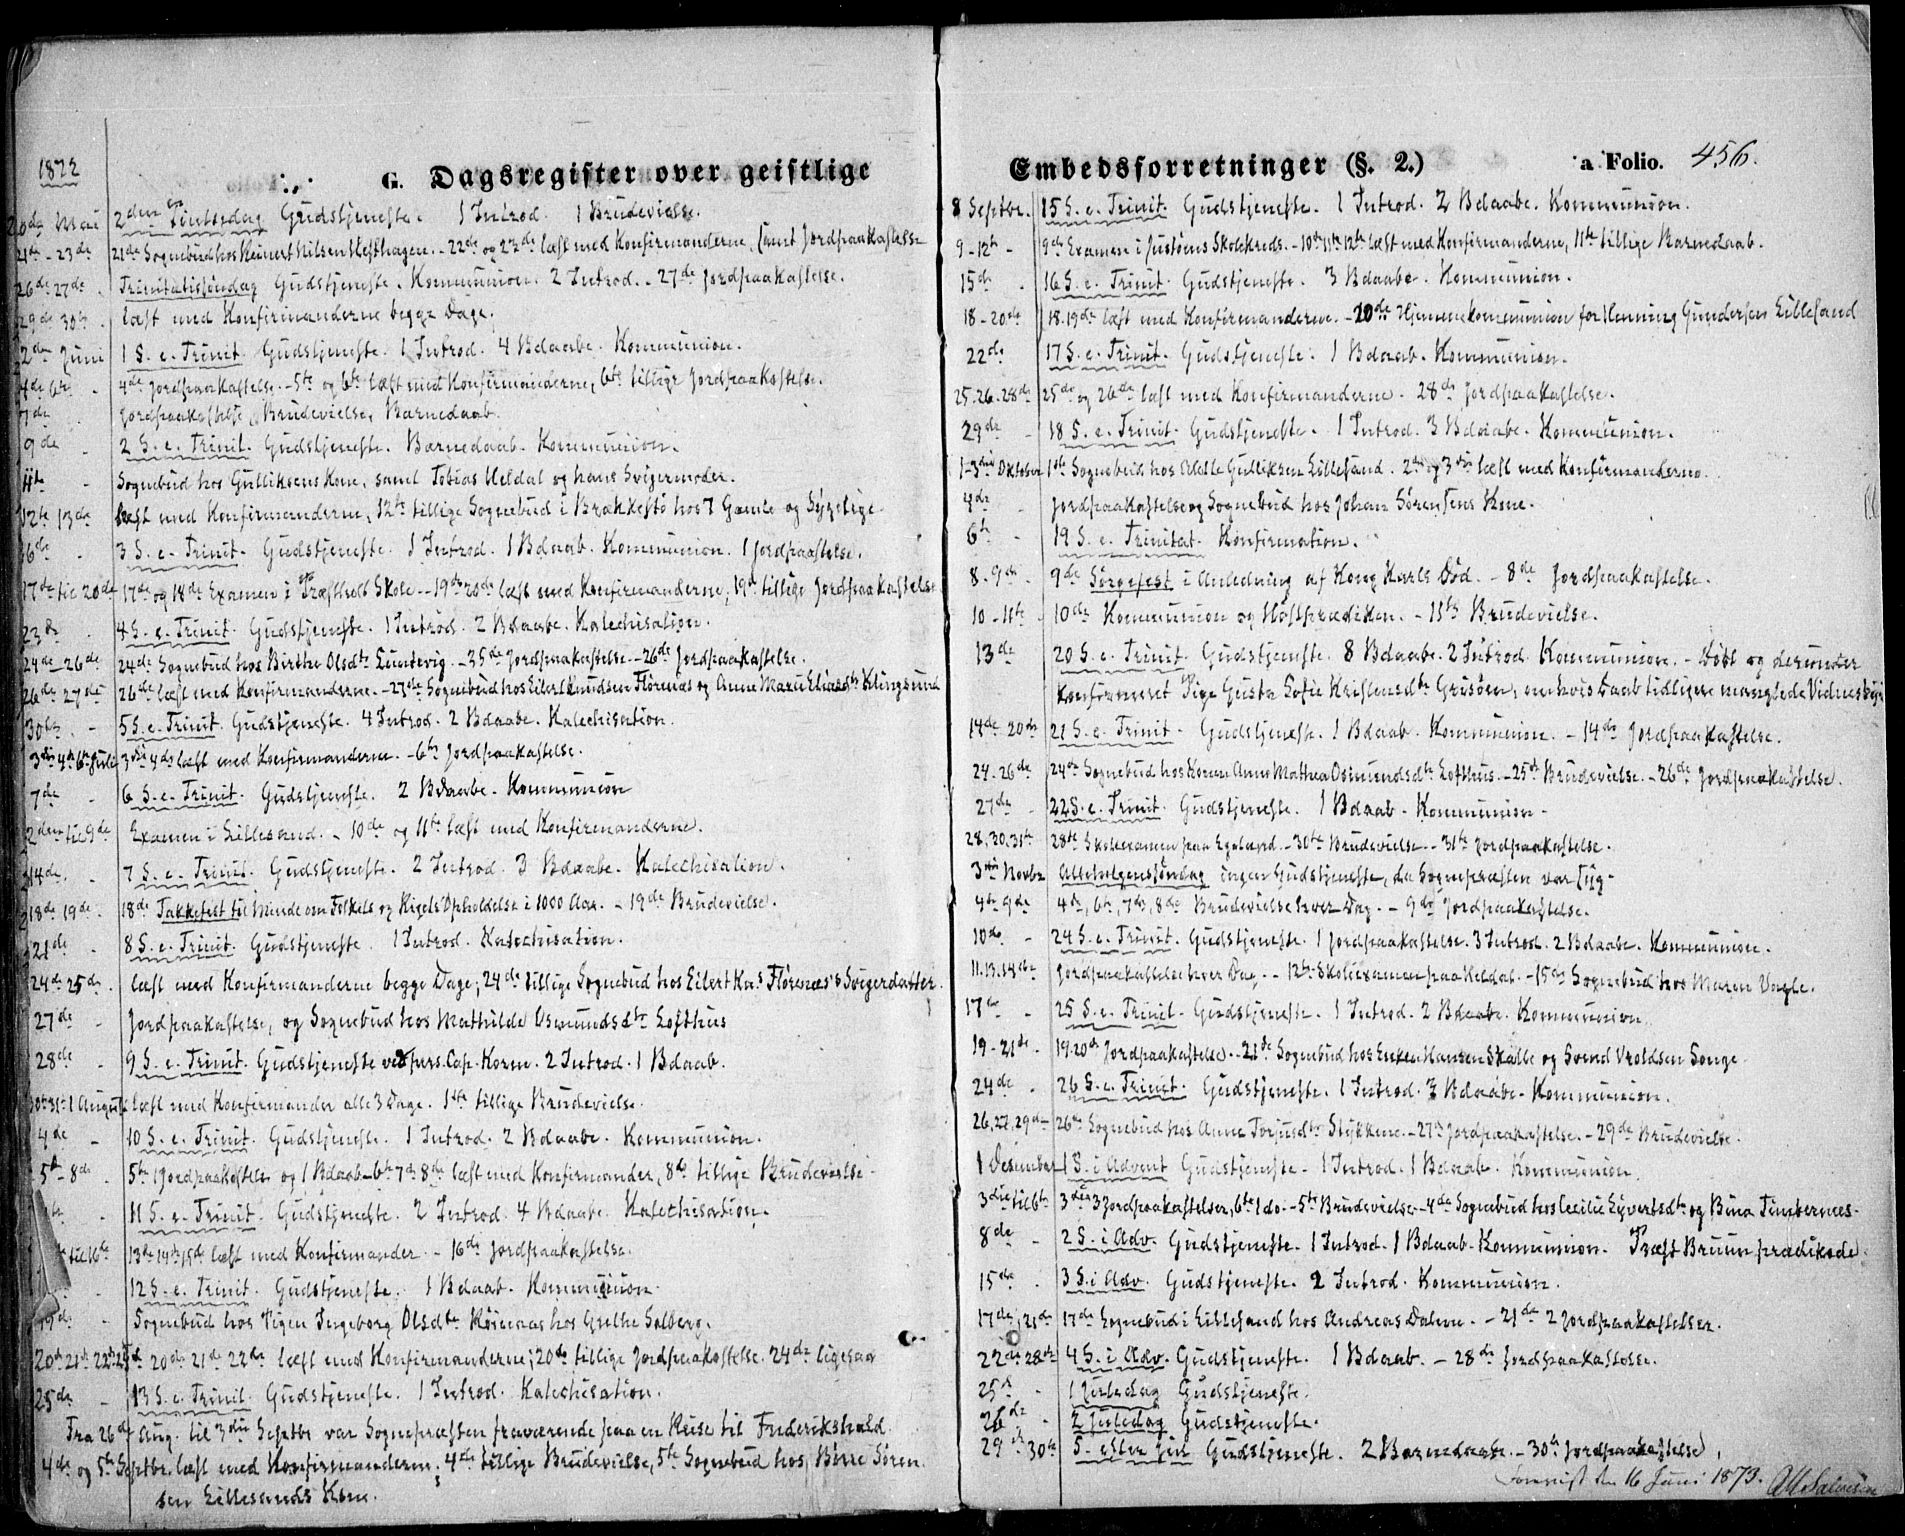 1872
G. Dagsregister over geistlige
20de Mai 2den Pintsedag Gudstjeneste. 1 Introd. 1 Brudevielse.
21de - 23de 21de Sognebud hos Reinert Nilsen Hefthagen. - 22de og 23de læst med Konfirmanderne, samt Jordpaakastelse
26de 27de. Trinitatissøndag Gudstjeneste. Kommunion. 2 Introd. - 27de Jordpaakastelse.
29de 30te læst med Konfirmanderne begge Dage.
2den Juni 1 S. e. Trinit. Gudstjeneste. 1 Introd. 4 Bdaabe. Kommunion.
4de 6te - 4de Jordpaakastelse. - 5te og 6te læst med Konfirmanderne, 6te tillige Jordpaakastelse.
7de Jordpaakastelse, Brudevielse, Barnedaab.
9de - 2 S. e. Trinit. Gudstjeneste. Barnedaab. Kommunion.
11te - Sognebud hos Gulliksens Kone, samt Tobias Heldal og hans Svigermoder.
12te 13de læst med Konfirmanderne, 12te tillige Sognebud i Brækkestø hos 7 Gamle og Sygelige.
16de - 3 S. e. Trinit. Gudstjeneste. 1 Introd. 1 Bdaab. Kommunion. 1 Jordpaastelse.
17de til 20de 17de og 18de Examen i Træstholt Skole. - 19de 20de læst med Konfirmanderne, 19de tillige Jordpaakastelse
23de - 4 S. e. Trinit. Gudstjeneste. 1 Introd. 2 Bdaabe. Katechisation.
24de - 26de 24de Sognebud hos Birthe Olsdtr Lundevig. - 25de Jordpaakastelse - 26de Jordpaakastelse.
26de 27de 26de læst med Konfirmanderne. - 27de Sognebud hos Eilert Knudsen Flørenæs og Anne Marie Eliasdtr Klingsund
30te - 5 S. e. Trinit. Gudstjeneste. 4 Introd. 2 Bdaabe. Katechisation.
3die 4de 6te Juli 3die 4de læst med Konfirmanderne. - 6te Jordpaakastelse.
7de - 6 S. e. Trinit. Gudstjeneste. 2 Bdaabe. Kommunion
til 9de Examen i Lillesand. - 10de og 11te læst med Konfirmanderne.
14de. - 7 S. e. Trinit. Gudstjeneste. 2 Introd. 3 Bdaabe. Katechisation.
18de 19de. 18de Takkefest til Minde om Folkets og Rigets Opholdelse i 1000 Aar. - 19de Brudevielse.
21de - 8 S. e. Trinit. Gudstjeneste. 1 Introd. Katechisation.
24de 25de. læst med Konfirmanderne begge Dage; 24de tillige Sognebud hos Eilert Kn.s Flørenæs's Svigerdatter.
27de - Jordpaakastelse, og Sognebud hos Mathilde Osmundsdtr Lofthus
28de - 9 S. e. Trinit. Gudstjeneste ved pers. Cap. Koren. 2 Introd. 1 Bdaab.
30te 31te 1 August læst med Konfirmander alle 3 Dage. 1ste tillige Brudevielse.
4de - 10 S. e. Trinit. Gudstjeneste. 1 Introd. 2 Bdaabe. Kommunion.
5te - 8de. 5te 1 Jordpaakastelse og 1 Bdaab - 6te 7de 8de læst med Konfirmander, 8de tillige Brudevielse.
11 S. e. Trinit. Gudstjeneste. 2 Introd. 4 Bdaabe. Katechisation.
til 16de 13de 14de 15de læst med Konfirmander. - 16de Jordpaakastelse.
12 S. e. Trinit. Gudstjeneste. 1 Bdaab. Kommunion.
19de - Sognebud hos Pigen Ingeborg Olsdtr hos Grethe Solberg.
20de 21de 22de 20de 21de 22de læst med Konfirmanderne; 20de tillige Jordpaakastelse. 24de ligesaa
25de 13 S. e. Trinit. Gudstjeneste. 1 Introd. Katechisation.
Fra 26de Aug. til 3die Septbr var Sognepræsten fraværende paa en Reise til Frederikshald.
4de og 5te Septbr. læst med Konfirmanderne; 4de tillige Brudevielse, 5te Sognebud hos Børre Søren
sen Lillesands Kone.
Embedsforretninger (§. 2.) a Folio. 456.
8 Septbr. 15 S. e. Trinit. Gudstjeneste. 1 Introd. 2 Bdaabe. Kommunion.
9 - 12te - 9de Examen i Justøens Skolekreds. - 10de 11te 12te læst med Konfirmanderne, 11te tillige Barnedaab.
15de . 16 S. e. Trinit. Gudstjeneste. 3 Bdaabe. Kommunion.
18 - 20de 18. 19de læst med Konfirmanderne. - 20de Hjemmekommunion for Henning Gundersen Lillesand
22de 17 S. e. Trinit. Gudstjeneste. 1 Bdaab. Kommunion.
25. 26. 28de 25de og 26de læst med Konfirmanderne. 28de Jordpaakastelse.
29de - 18 S. e. Trinit. Gudstjeneste. 1 Introd. 3 Bdaabe. Kommunion.
1 - 3die Oktober 1ste Sognebud hos Gulliksen Lillesand. 2den og 3die læst med Konfirmanderne.
4de Jordpaakastelse og Sognebud hos Johan Sørensens Kone.
6te - 19 S. e. Trinitat. Konfirmation.
8 - 9de. 9de Sørgefest i Anledning af Kong Karls Død. - 8de Jordpaakastelse.
10 - 11te 10de Kommunion og Høstprædiken. - 11te Brudevielse.
13de 20 S. e. Trinit. Gudstjeneste. 8 Bdaabe. 2 Introd. Kommunion. - Døbt og derunder
Konfirmeret Pige Gusta Sofie Kristensdtr Grisøen, om hvis Daab tidligere manglede Vidnesbyr
14de 20de 21 S. e. Trinit. Gudstjeneste. 1 Bdaab. Kommunion. - 14de Jordpaakastelse.
24. 26de 24de Sognebud hos Konen Anne Mathea Osmundsdtr Lofthus. - 25de Brudevielse. - 26de Jordpaakastelse.
27de - 22 S. e. Trinit. Gudstjeneste. 1 Bdaab. Kommunion.
28, 30, 31te 28de Skoleexamen paa Egeland. - 30te Brudevielse - 31te Jordpaakastelse.
3die Novbr Allehelgenssøndag ingen Gudstjeneste, da Sognepræsten var syg.
4de 9de 4de, 6te, 7de, 8de Brudevielse hver Dag. - 9de Jordpaakastelse.
10de - 24 S. e. Trinit. Gudstjeneste. 1 Jordpaakastelse. 3 Introd. 2 Bdaabe. Kommunion.
11. 13. 14de Jordpaakastelse hver Dag. - 12te Skoleexamen paa Heldal. - 15de Sognebud hos Maren Vagle.
17de - 25 S. e. Trinit. Gudstjeneste. 1 Introd. 2 Bdaabe. Kommunion
19 - 21de - 19. 20de Jordpaakastelse. - 21de Sognebud hos Enken Hansen Skalle og Svend Vroldsen Songe.
24de - 26 S. e. Trinit. Gudstjeneste. 1 Introd. 3 Bdaabe. Kommunion.
26, 27, 29de - 26de Sognebud hos Anne Torjusdtr Stykkene. - 27de Jordpaakastelse. - 29de Brudevielse.
1 Desember 1 S. i Advent Gudstjeneste. 1 Introd. 1 Bdaab. Kommunion
3die til 6te 3die 3 Jordpaakastelser, 6te 1 do. - 5te Brudevielse - 4de Sognebud hos Cecilie Syvertsdtr og Bina Timbernes.
8de - 2 S. i Adv. Gudstjeneste. 1 Introd. 1 Bdaab. Kommunion. Præst Bruun prædikede.
15de . 3 S. i Adv. Gudstjeneste. 2 Introd. Kommunion.
17de, 21de 17de Sognebud i Lillesand hos Andreas Dalene. - 21de 2 Jordpaakastelser.
22de 28de 4 S. i Adv. Gudstjeneste. 1 Bdaab. - 28de Jordpaakastelse.
25de - 1 Juledag Gudstjeneste.
26de - 2 Juledag Gudstjeneste.
29de 30te S. efter Jul Gudstjeneste. 2 Barnedaab. - 30te Jordpaakastelse,
Forevist den 16 Juni 1873.